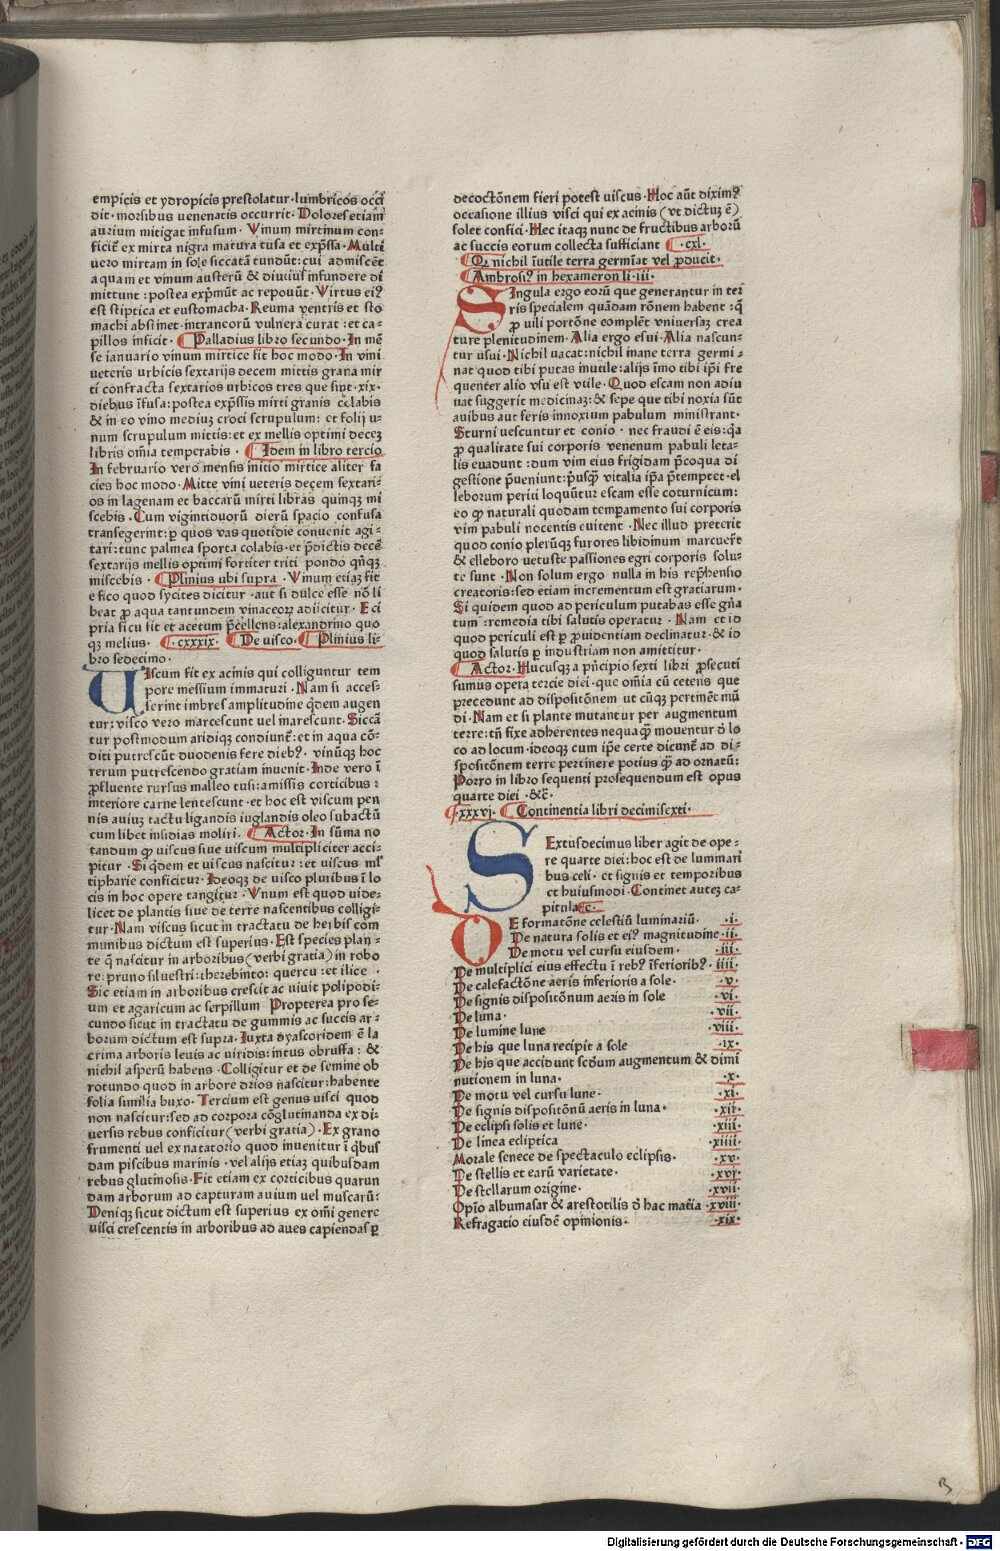 empicis et ydropicis prestolatur·lumbricos occi
dit·morsibus uenenatis occurrit·Dolores etiam
aurium mitigat infusum·Vinum mirtinum con-
ficit̄ ex mirta nigra matura tusa et exp̄ssa·Multi
uero mirtam in sole siccatā tundūt:cui admiscēt
aquam et vinum austerū & diuīus infundere di
mittunt:postea exp̄mūt ac repoūt·Virtus ei⁹
est stiptica et eustomacha·Reuma ventris et sto
machi abstinet·intrancorū vulnera curat:et ca-
pillos inficit·Palladius libro secundo·In mē
se ianuario vinum mirtice sit hoc modo·In vini
ueteris urbicis sextarijs decem mittis grana mir
ti confracta sextarios urbicos tres que sint·xix·
diebus īfusa:postea exp̄ssis mirti granis cōlabis
& in eo vino mediuꝫ croci scrupulum: et folij u-
num scrupulum mittis:et ex mellis optimi deceꝫ
libris om̄ia temperabis·Idem in libro tercio
In februario vero mensis inicio mirtice aliter fa
cies hoc modo·Mitte vini ueteris decem sextari-
os in lagenam et baccarū mirti libras quinqꝫ mi
scebis·Cum vigintiduorū dierū spacio confusa
transegerint:ꝑ quos vas quotidie conuenit agi-
tari:tunc palmea sporta colabis·et p̄dictis decē
sextarijs mellis optimi fortiter triti pondo qn̄qꝫ
miscebis·Plinius ubi supra·Vinum etiaꝫ fit
e fico quod sycites dicitur·aut si dulce esse nō li
beat ꝑ aqua tantundem vinaceoꝝ adijcitur·E ci
pria ficu fit et acetum p̄cellens:alexandrino quo
qꝫ melius·cxxxix·De uisco·Plinius li-
bro sedecimo·
Uiscum fit ex acinis qui colliguntur tem
pore messium immaturi·Nam si acces-
serint imbres amplitudine q̄dem augen
tur:visco vero marcescunt uel marescunt·Siccā
tur postmodum aridiqꝫ condiunt̄:et in aqua cō-
diti putrescūt duodenis fere dieb⁹·vinūqꝫ hoc
rerum putrescendo gratiam inuenit·Inde vero ī
ꝓfluente rursus malleo tusi:amissis corticibus:
interiore carne lentescunt·et hoc est viscum pen
nis auiuꝫ tactu ligandis iuglandis oleo subactū
cum libet insidias moliri.Actor·In sūma no
tandum ꝙ uiscus siue viscum multipliciter acci-
pitur·Si q̄dem et uiscus nascitur:et uiscus ml̄
tipharie conficitur·Ideoqꝫ de uisco pluribus ī lo
cis in hoc opere tangitur·Vnum est quod uide-
licet de plantis siue de terre nascentibus colligi-
tur·Nam viscus sicut in tractatu de herbis com
munibus dictum est superius·Est species plan-
te q̄ nascitur in arboribus (verbi gratia) in robo
re:pruno siluestri:therebinto:quercu:et ilice
Sic etiam in arboribus crescit ac uiuit polipodi-
um et agaricum ac serpillum Propterea pro se-
cundo sicut in tractatu de gummis ac succis ar-
borum dictum est supra·Iuxta dyascoridem ē la
crima arboris leuis ac uiridis:intus obruffa:&
nichil asperū habens·Colligitur et de semine ob
rotundo quod in arbore drios nascitur:habente
folia similia buxo·Tercium est genus uisci quod
non nascitur:sed ad corpora cōglutinanda ex di-
uersis rebus conficitur (verbi gratia)·Ex grano
frumenti uel ex natatorio quod inuenitur ī q̄bus
dam piscibus marinis·vel alijs etiaꝫ quibusdam
rebus glutinosis·Fit etiam ex corticibus quarun
dam arborum ad capturam auium uel muscarū:
Deniqꝫ sicut dictum est superius ex om̄i genere
uisci crescentis in arboribus ad aues capiendas ꝑ
decoctōnem fieri potest uiscus·Hoc aūt dixim⁹
occasione illius visci qui ex acinis (vt dictuꝫ ē)
solet confici·Hec itaqꝫ nunc de fructibus arborū
ac succis eorum collecta sufficiant·cxl·
Qꝛ nichil īutile terra germīat vel ꝓducit·
Ambrosi⁹ in hexameron li·iii·
Singula ergo eorū que generantur in ter
ris specialem quādam rōnem habent:q̄
ꝓ uili portōne complēt vniuersaꝫ crea
ture plenitudinem·Alia ergo esui·Alia nascun-
tur usui·Nichil uacat:nichil inane terra germi-
nat quod tibi putas inutile:alijs īmo tibi ip̄i fre
quenter alio vsu est vtile·Quod escam non adiu
uat suggerit medicinaꝫ:& sepe que tibi noxia sūt
auibus aut feris innoxium pabulum ministrant·
Sturni uescuntur et conio·nec fraudi ē eis:q̄a
ꝑ qualitate sui corporis venenum pabuli leta-
lis euadunt:dum vim eius frigidam p̄coqua di
gestione p̄ueniunt:p̄usqꝫ vitalia ip̄a p̄temptet·el
leborum periti loquūtur escam esse coturnicum:
eo ꝙ naturali quodam temp̄amento sui corporis
vim pabuli nocentis euitent·Nec illud preterit
quod conio plerūqꝫ furores libidinum marcuer̄t
& elleboro uetuste passiones egri corporis solu-
te sunt·Non solum ergo nulla in his rep̄hensio
creatoris:sed etiam incrementum est gratiarum·
Si quidem quod ad periculum putabas esse gn̄a
tum:remedia tibi salutis operatur·Nam et id
quod periculi est ꝑ ꝓuidentiam declinatur·& id
quod salutis ꝑ industriam non amittitur·
Actor·Hucusqꝫ a p̄ncipio sexti libri ꝓsecuti
sumus opera tercie diei·que om̄ia cū ceteris que
precedunt ad dispositōnem ut cūqꝫ pertinēt mū
di·Nam et si plante mutantur per augmentum
terre:tn̄ fixe adherentes nequaqꝫ mouentur d̄ lo
co ad locum·ideoqꝫ cum ip̄e certe dicunt̄ ad di-
spositōnem terre pertinere potius qꝫ ad ornatū:
Porro in libro sequenti prosequendum est opus
quarte diei·&c̄·
·xxxvj·Continentia libri decimisexti·
Sextusdecimus liber agit de ope-
re quarte diei:hoc est de luminari
bus celi·et signis et temporibus
et huiusmodi·Continet auteꝫ ca-
pitula
De formatōne celestiū luminariū·i·
De natura solis et ei⁹ magnitudine·ii·
De motu vel cursu eiusdem·iii·
De multiplici eius effectu ī reb⁹ īferiorib⁹·iiii·
De calefactōne aeris inferioris a sole·v·
De signis dispositōnum aeris in sole·vi·
De luna·vii·
De lumine lune·viii·
De his que luna recipit a sole·ix·
De his que accidunt scd̄um augmentum & dimi
nutionem in luna·x·
De motu vel cursu lune·xi·
De signis dispositōnū aeris in luna·xii·
De eclipsi solis et lune·xiii·
De linea ecliptica·xiiii·
Morale senece de spectaculo eclipsis·xv·
De stellis et earū varietate·xvj·
De stellarum origine·xvii·
Opīo albumasar & arestotilis d̄ hac mat̄ia·xviii·
Refragatio eiusdē opinionis·xix·
Digitalisierung gefördert durch die Deutsche Forschungsgemeinschaft · DFG